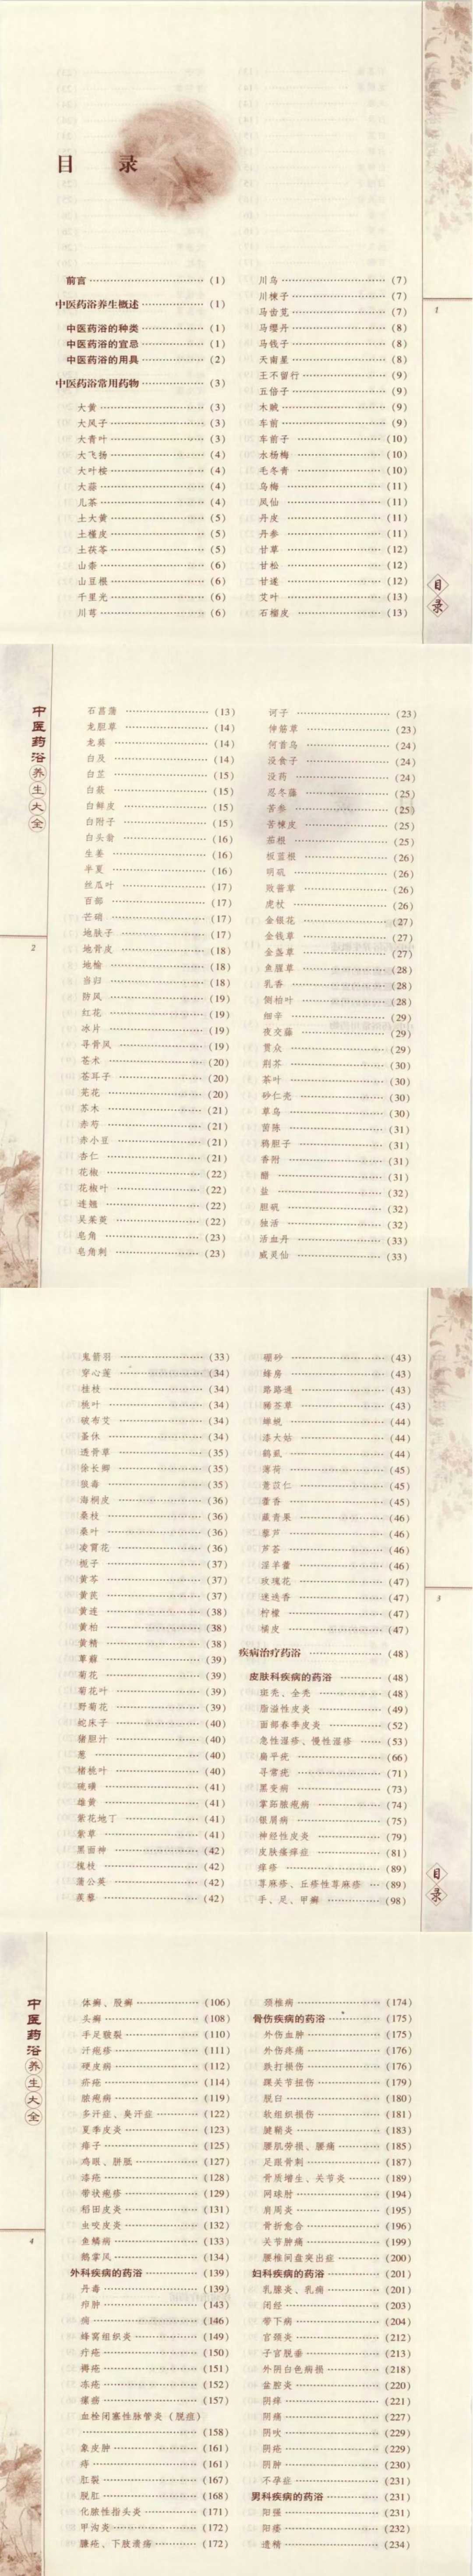 目 录
前言 (1)
中医药浴养生概述 (1)
中医药浴的种类 (1)
中医药浴的宜忌 (1)
中医药浴的用具 (2)
中医药浴常用药物 (3)
大黄 (3)
大风子 (3)
大青叶 (3)
大飞扬 (4)
大叶桉 (4)
大蒜 (4)
儿茶 (4)
土大黄 (5)
土槿皮 (5)
土茯苓 (5)
山柰 (6)
山豆根 (6)
千里光 (6)
川芎 (6)
川乌 (7)
川楝子 (7)
马齿苋 (7)
马缨丹 (8)
马钱子 (8)
天南星 (8)
王不留行 (9)
五倍子 (9)
木贼 (9)
车前 (9)
车前子 (10)
水杨梅 (10)
毛冬青 (10)
乌梅 (11)
凤仙 (11)
丹皮 (11)
丹参 (11)
甘草 (12)
甘松 (12)
甘遂 (12)
艾叶 (13)
石榴皮 (13)
1
目录
中医药浴养生大全
2
石菖蒲 (13)
龙胆草 (14)
龙葵 (14)
白及 (14)
白芷 (15)
白蔹 (15)
白鲜皮 (15)
白附子 (15)
白头翁 (16)
生姜 (16)
半夏 (16)
丝瓜叶 (17)
百部 (17)
芒硝 (17)
地肤子 (17)
地骨皮 (18)
地榆 (18)
当归 (18)
防风 (19)
红花 (19)
冰片 (19)
寻骨风 (19)
苍术 (20)
苍耳子 (20)
芫花 (20)
苏木 (21)
赤芍 (21)
赤小豆 (21)
杏仁 (21)
花椒 (22)
花椒叶 (22)
连翘 (22)
吴茱萸 (22)
皂角 (23)
皂角刺 (23)
诃子 (23)
伸筋草 (23)
何首乌 (24)
没食子 (24)
没药 (24)
忍冬藤 (25)
苦参 (25)
苦楝皮 (25)
茄根 (25)
板蓝根 (26)
明矾 (26)
败酱草 (26)
虎杖 (26)
金银花 (27)
金钱草 (27)
金盏草 (27)
鱼腥草 (28)
乳香 (28)
侧柏叶 (28)
细辛 (29)
夜交藤 (29)
贯众 (29)
荆芥 (30)
茶叶 (30)
砂仁壳 (30)
草乌 (30)
茵陈 (31)
鸦胆子 (31)
香附 (31)
醋 (31)
盐 (32)
胆矾 (32)
独活 (32)
活血丹 (33)
威灵仙 (33)
鬼箭羽 (33)
穿心莲 (34)
桂枝 (34)
桃叶 (34)
破布艾 (34)
蚤休 (34)
透骨草 (35)
徐长卿 (35)
狼毒 (35)
海桐皮 (36)
桑枝 (36)
桑叶 (36)
凌霄花 (36)
栀子 (37)
黄芩 (37)
黄芪 (37)
黄连 (38)
黄柏 (38)
黄精 (38)
萆薢 (39)
菊花 (39)
菊花叶 (39)
野菊花 (39)
蛇床子 (40)
猪胆汁 (40)
葱 (40)
楮桃叶 (40)
硫磺 (41)
雄黄 (41)
紫花地丁 (41)
紫草 (41)
黑面神 (42)
槐枝 (42)
蒲公英 (42)
蒺藜 (42)
硼砂 (43)
蜂房 (43)
路路通 (43)
豨莶草 (43)
蟛蜞 (44)
漆大姑 (44)
鹤虱 (44)
薄荷 (45)
薏苡仁 (45)
藿香 (45)
藏青果 (46)
藜芦 (46)
芦荟 (46)
淫羊藿 (46)
玫瑰花 (47)
迷迭香 (47)
柠檬 (47)
橘皮 (47)
疾病治疗药浴 (48)
皮肤科疾病的药浴 (48)
斑秃、全秃 (48)
脂溢性皮炎 (49)
面部春季皮炎 (52)
急性湿疹、慢性湿疹 (53)
扁平疣 (66)
寻常疣 (71)
黑变病 (73)
掌跖脓疱病 (74)
银屑病 (75)
神经性皮炎 (79)
皮肤瘙痒症 (81)
痒疹 (89)
荨麻疹、丘疹性荨麻疹 (89)
手、足、甲癣 (98)
3
目录
中医药浴养生大全
4
体癣、股癣 (106)
头癣 (108)
手足皲裂 (110)
汗疱疹 (111)
硬皮病 (112)
疥疮 (114)
脓疱病 (119)
多汗症、臭汗症 (122)
夏季皮炎 (123)
痱子 (125)
鸡眼、胼胝 (127)
漆疮 (128)
带状疱疹 (129)
稻田皮炎 (131)
虫咬皮炎 (132)
鱼鳞病 (133)
鹅掌风 (134)
外科疾病的药浴 (139)
丹毒 (139)
疖肿 (143)
痈 (146)
蜂窝组织炎 (149)
疔疮 (150)
褥疮 (151)
冻疮 (152)
瘰疬 (157)
血栓闭塞性脉管炎（脱疽）
(158)
象皮肿 (161)
痔 (161)
肛裂 (167)
脱肛 (168)
化脓性指头炎 (171)
甲沟炎 (172)
臁疮、下肢溃疡 (172)
颈椎病 (174)
骨伤疾病的药浴 (175)
外伤血肿 (175)
外伤疼痛 (176)
跌打损伤 (176)
踝关节扭伤 (179)
脱臼 (180)
软组织损伤 (181)
腱鞘炎 (183)
腰肌劳损、腰痛 (185)
足跟骨刺 (187)
骨质增生、关节炎 (189)
网球肘 (194)
肩周炎 (195)
骨折愈合 (196)
关节肿痛 (199)
腰椎间盘突出症 (200)
妇科疾病的药浴 (201)
乳腺炎、乳痈 (201)
闭经 (203)
带下病 (204)
宫颈炎 (212)
子宫脱垂 (213)
外阴白色病损 (218)
盆腔炎 (220)
阴痒 (221)
阴痛 (227)
阴吹 (229)
阴疮 (229)
阴肿 (230)
不孕症 (231)
男科疾病的药浴 (231)
阳强 (231)
阳痿 (232)
遗精 (234)